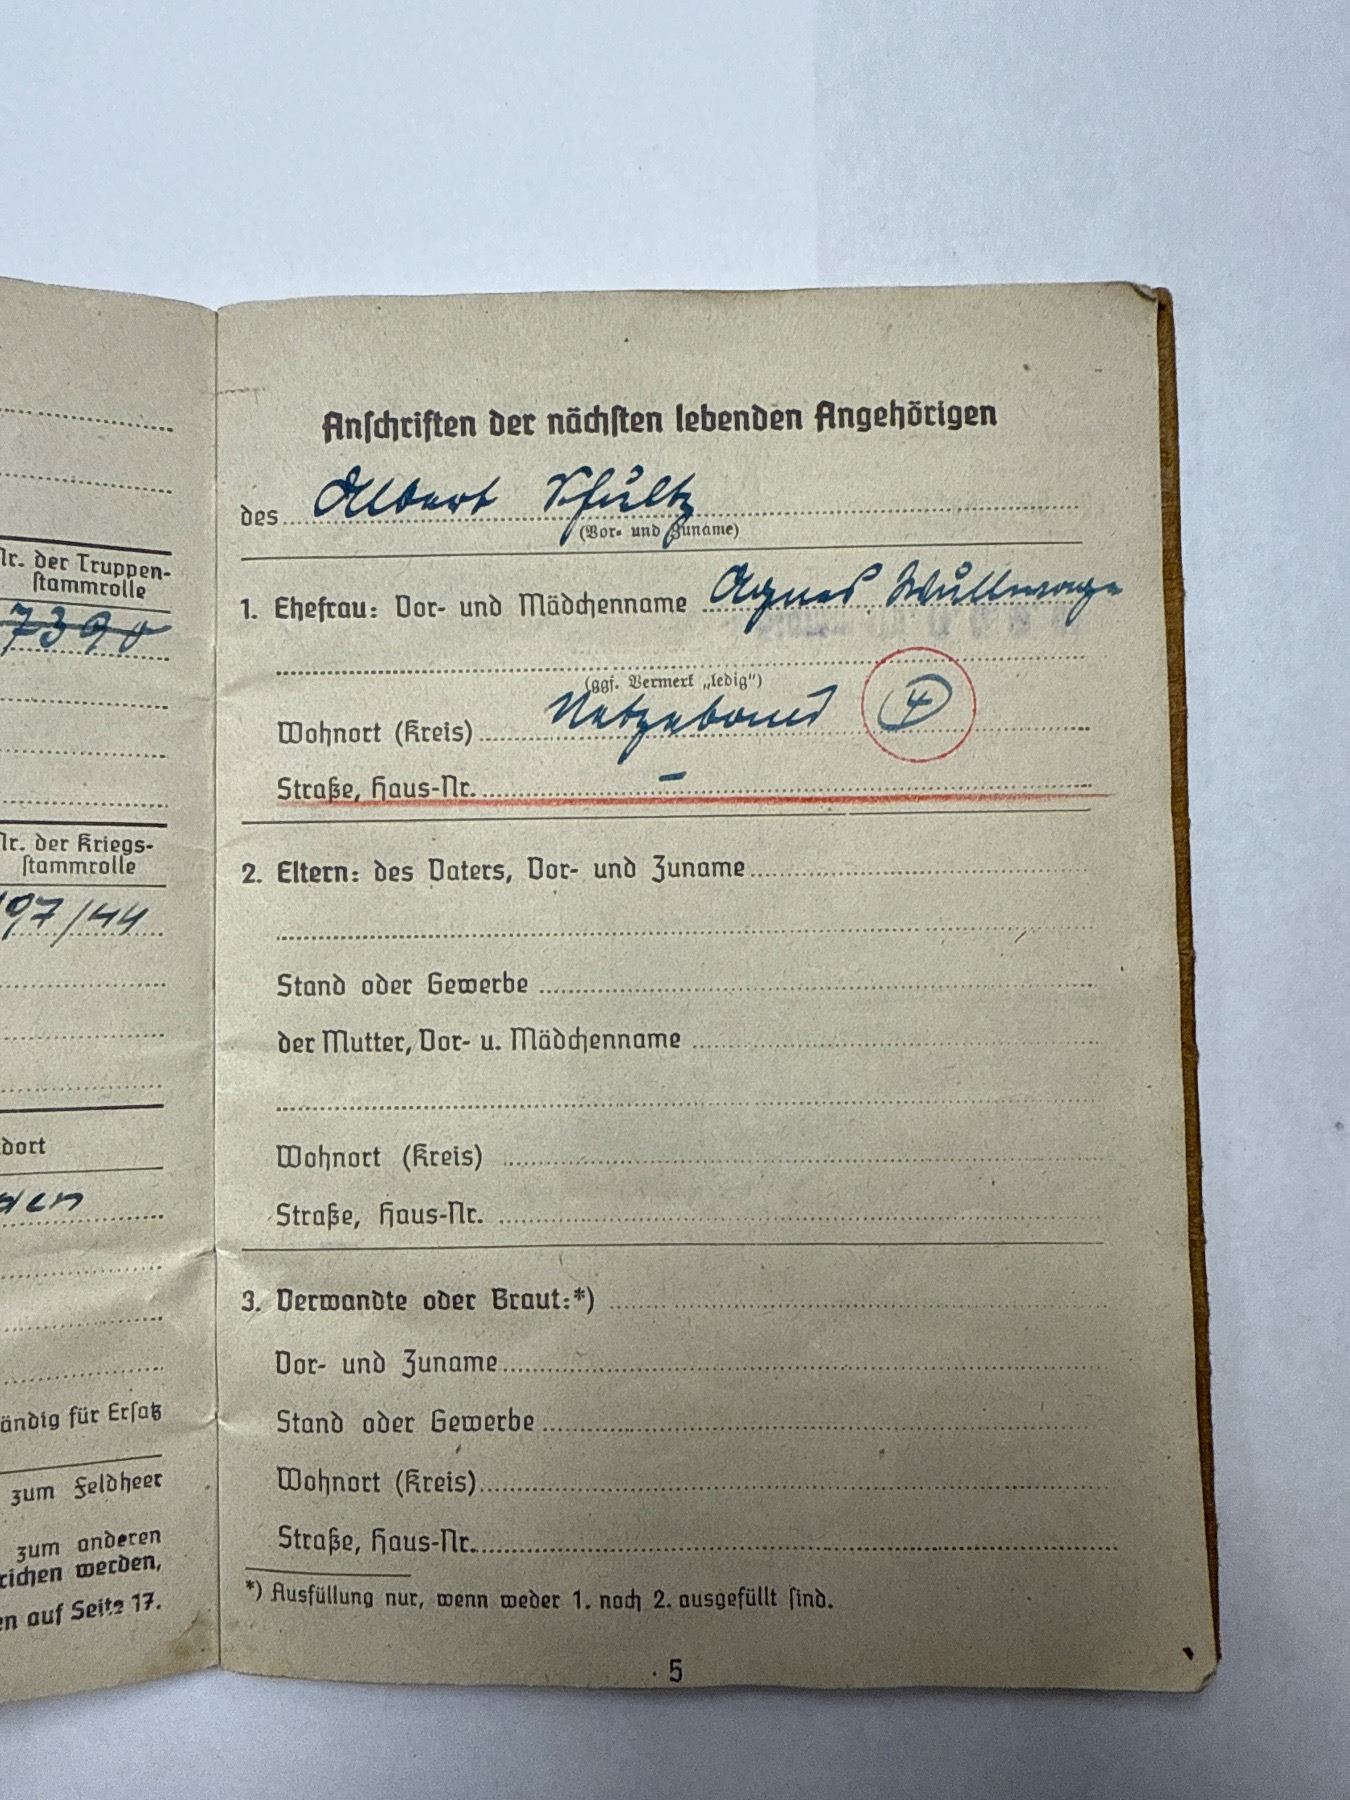 Nr. der Truppen-
stammrolle
7390
Nr. der Kriegs-
stammrolle
197/44
dort
den
ändig für Ersatz
zum Feldheer
zum anderen
richen werden,
en auf Seite 17.
Anschriften der nächsten lebenden Angehörigen
des Albert Schultz
(Vor- und Zuname)
1. Ehefrau: Vor- und Mädchenname Agnes
(ggf. Vermerk „ledig“)
Wohnort (Kreis) Netzebaud 4
Straße, Haus-Nr. –
2. Eltern: des Vaters, Vor- und Zuname
Stand oder Gewerbe
der Mutter, Vor- u. Mädchenname
Wohnort (Kreis)
Straße, Haus-Nr.
3. Verwandte oder Braut:*)
Vor- und Zuname
Stand oder Gewerbe
Wohnort (Kreis)
Straße, Haus-Nr.
*) Ausfüllung nur, wenn weder 1. noch 2. ausgefüllt sind.
5